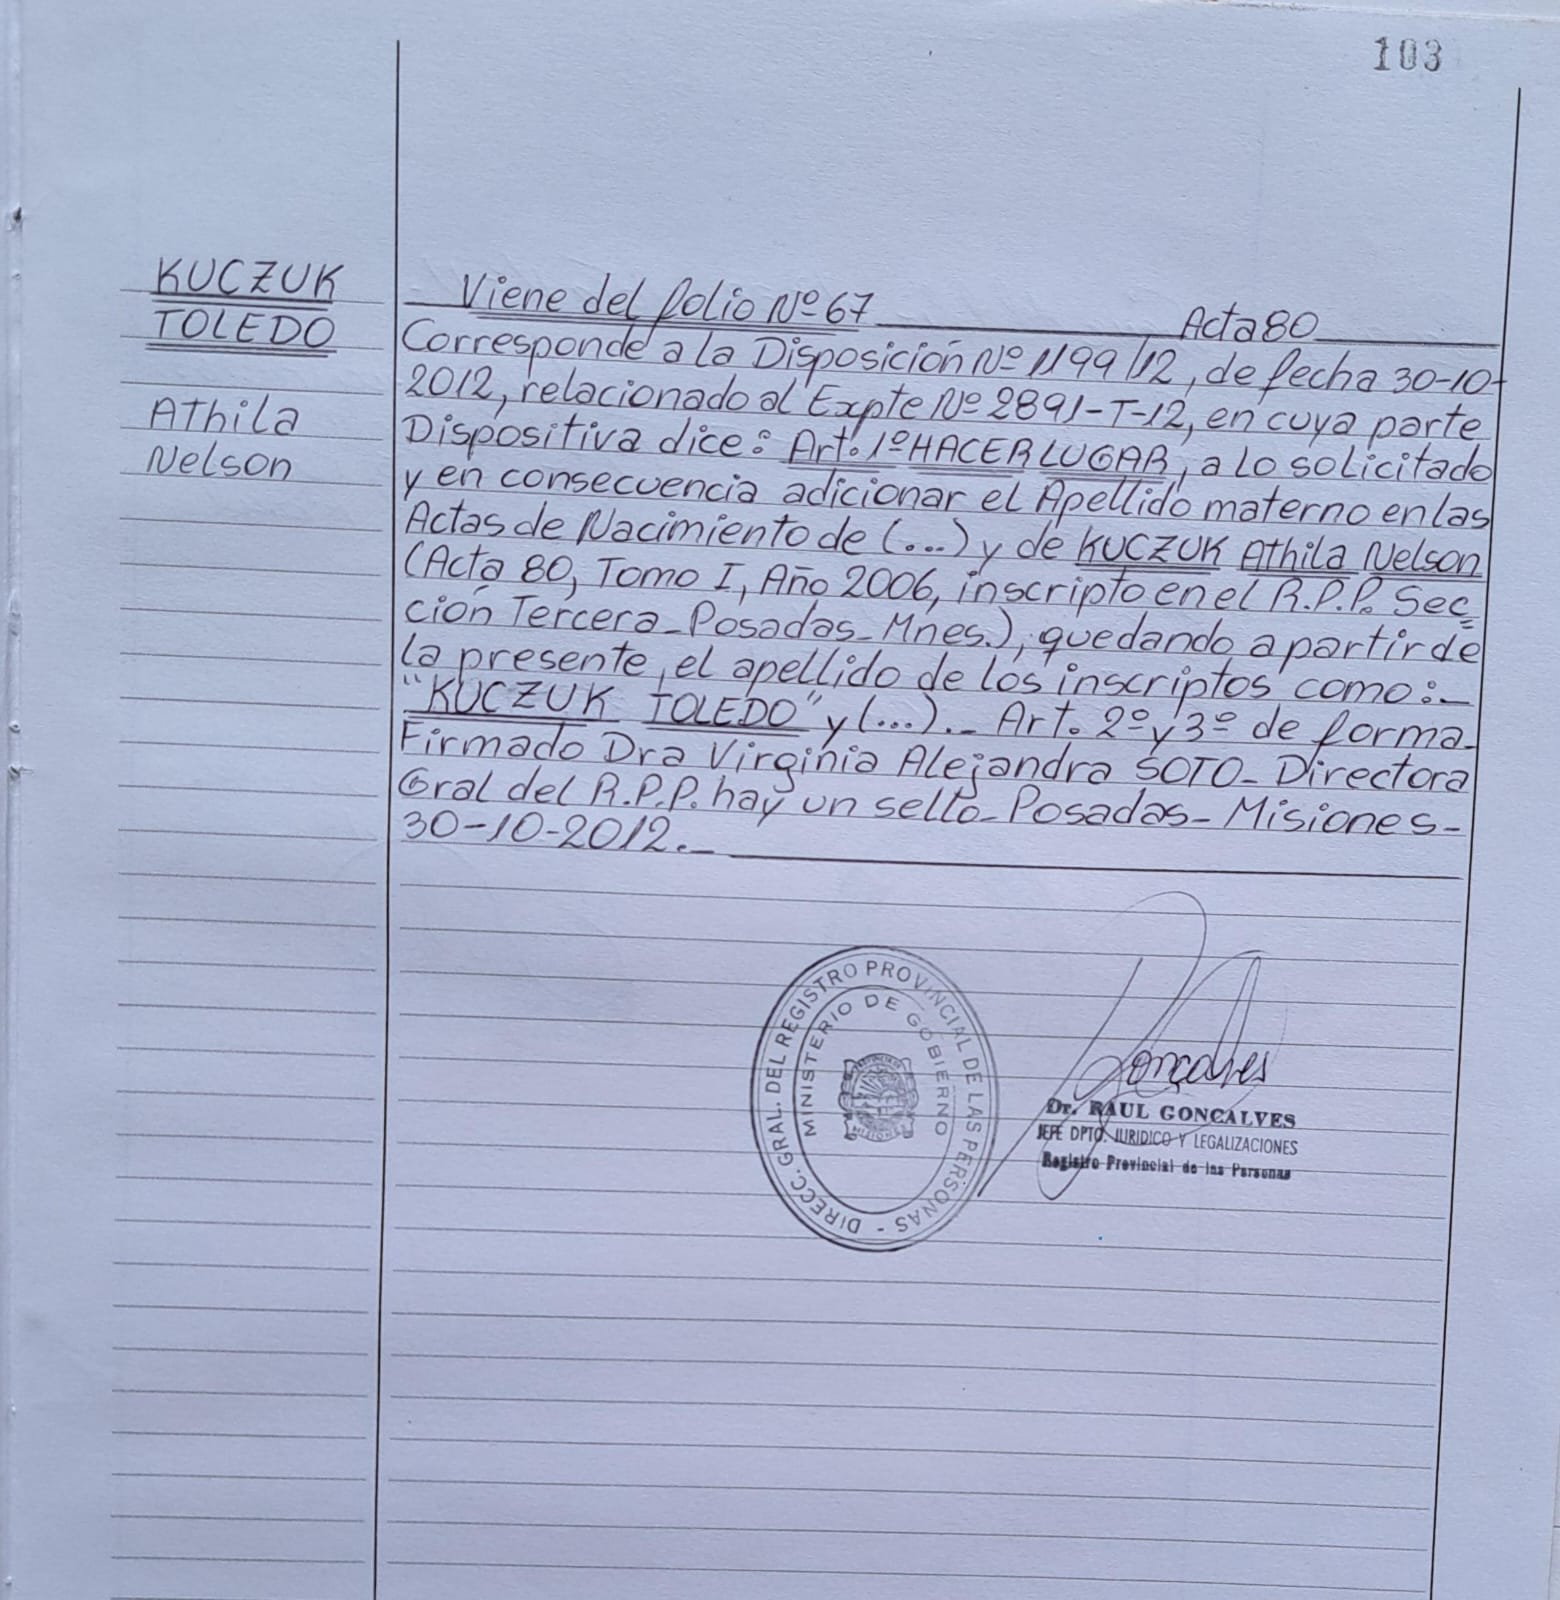 103
KUCZUK
TOLEDO
Athila
Nelson
Viene del folio Nº 67 Acta 80
Corresponde a la Disposición Nº 1199/12, de fecha 30-10-
2012, relacionado al Expte Nº 2891-T-12, en cuya parte
Dispositiva dice: Art. 1º HACER LUGAR, a lo solicitado
y en consecuencia adicionar el Apellido materno en las
Actas de Nacimiento de (...) y de KUCZUK Athila Nelson
(Acta 80, Tomo I, Año 2006, inscripto en el R.P.P. Sec=
ción Tercera_Posadas_Mnes.), quedando a partir de
la presente, el apellido de los inscriptos como:_
"KUCZUK TOLEDO" y (...)._ Art. 2º y 3º de forma_
Firmado Dra Virginia Alejandra SOTO_Directora
Gral del R.P.P. hay un sello_Posadas_Misiones_
30-10-2012._
DIRECC. GRAL. DEL REGISTRO PROVINCIAL DE LAS PERSONAS -
MINISTERIO DE GOBIERNO
MISIONES
Goncalves
Dr. RAUL GONCALVES
JEFE DPTO. JURIDICO Y LEGALIZACIONES
Registro Provincial de las Personas